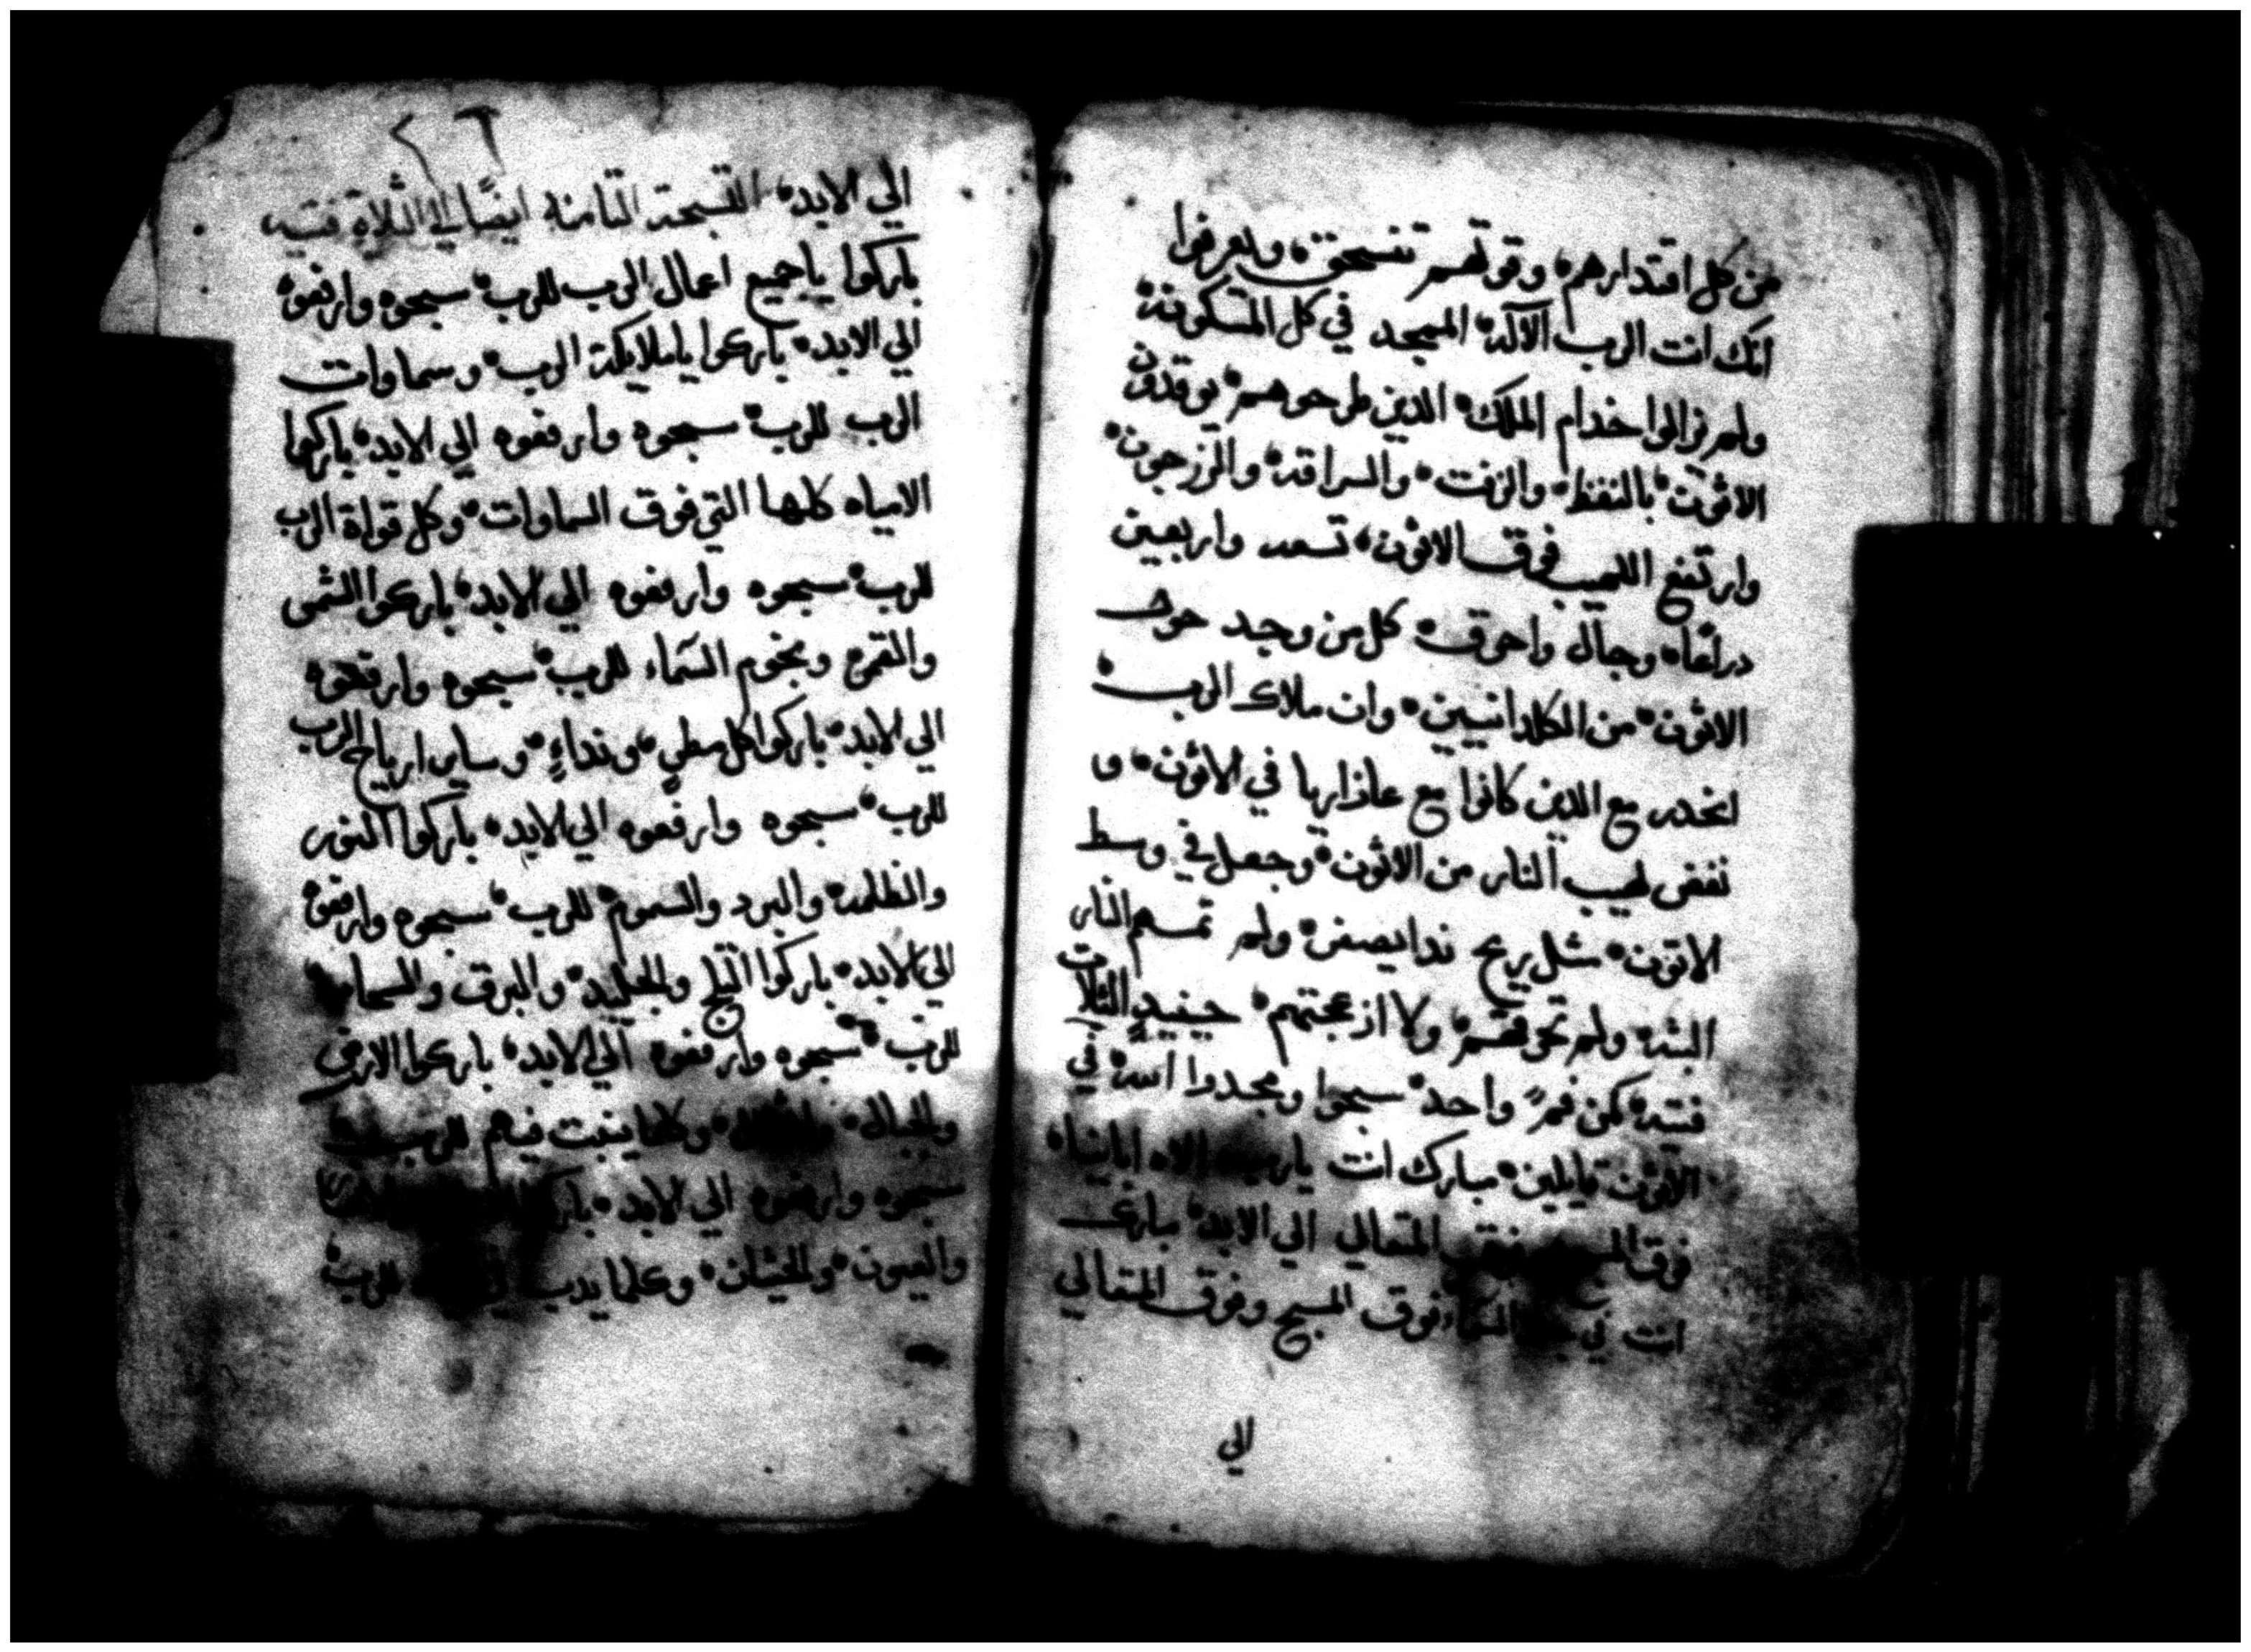 من كل اقتدارهم وقوتهم تنسحق وليعرفوا
انك انت الرب الآله الممجد في كل المسكونة
ولم زالوا خدام الملك الدين طرحوهم يوقدون
الاثون بالنفظ والزفت والسراقه والزرجون
وارتفع اللهيب فوق الاثون تسعه واربعين
دراعًا وجال واحرق كل من وجد حول
الاثون من الكلدانيين وان ملاك الرب
انحدر مع الدين كانوا مع عازاريا في الاثون و
نفض لهيب النار من الاثون وجعل في وسط
الاتون مثل ريح ندا يصفر ولم تمسهم النار
البته ولم تحرقهم ولا ازعجتهم حينيدٍ الثلاث
فتيه كمن فمٍ واحد سبحوا ومجدوا الله في
الاثون قايلين مبارك انت يارب الاه ابائنا
فوق المتعالي الي الابد مبارك
انت في السماء فوق المسبح وفوق المتعالي
الي
٢٦
الي الابد التسبحة الثامنه ايضًا الي الثلاة فتيه
باركوا ياجميع اعمال الرب للرب سبحوه وارفعوه
الي الابد باركوا ياملايكة الرب وسماوات
الرب للرب سبحوه وارفعوه الي الابد باركها
الامياه كلها التي فوق السماوات وكل قواة الرب
للرب سبحوه وارفعوه الي الابد باركوا الشمس
والقمر ونجوم السمآء للرب سبحوه وارفعوه
الي الابد باركوا كل مطرٍ ونداءٍ وساير ارياح الرب
للرب سبحوه وارفعوه الي الابد باركوا النور
والظلمه والبرد والسموم للرب سبحوه وارفعوه
الي الابد باركوا الثلج والجليد والبرق والسحاب
للرب سبحوه وارفعوه الي الابد باركوا الارض
والجبال وكلما ينبت فيهم للرب
سبحوه وارفعوه الي الابد
والعيون والحيثان وكلما يدب للرب